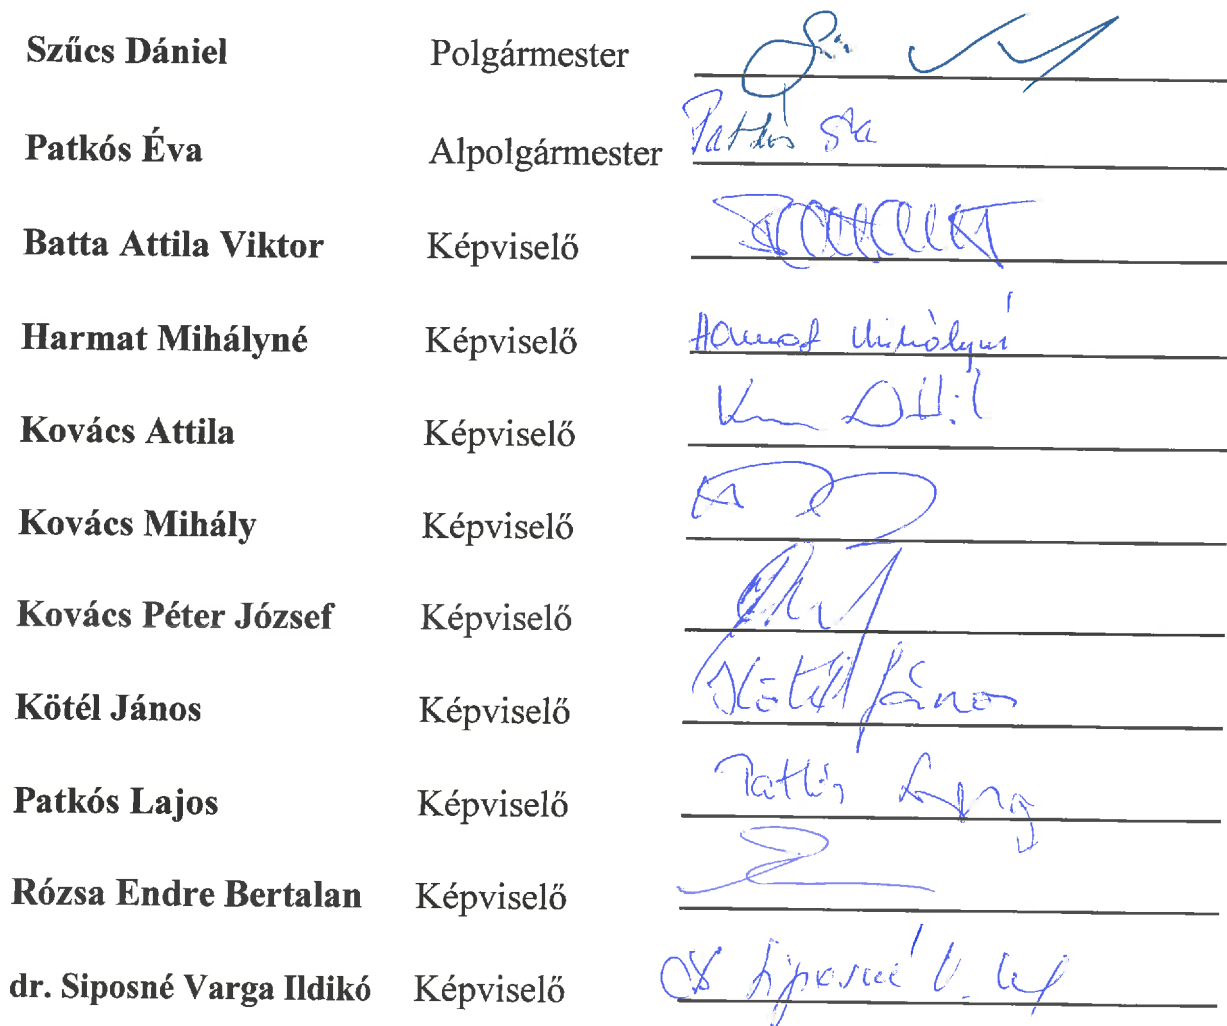 Szűcs Dániel Polgármester
Patkós Éva Alpolgármester Patkós Éva
Batta Attila Viktor Képviselő
Harmat Mihályné Képviselő Harmat Mihályné
Kovács Attila Képviselő
Kovács Mihály Képviselő
Kovács Péter József Képviselő
Kötél János Képviselő Kötél János
Patkós Lajos Képviselő Patkós
Rózsa Endre Bertalan Képviselő
dr. Siposné Varga Ildikó Képviselő Siposné V.